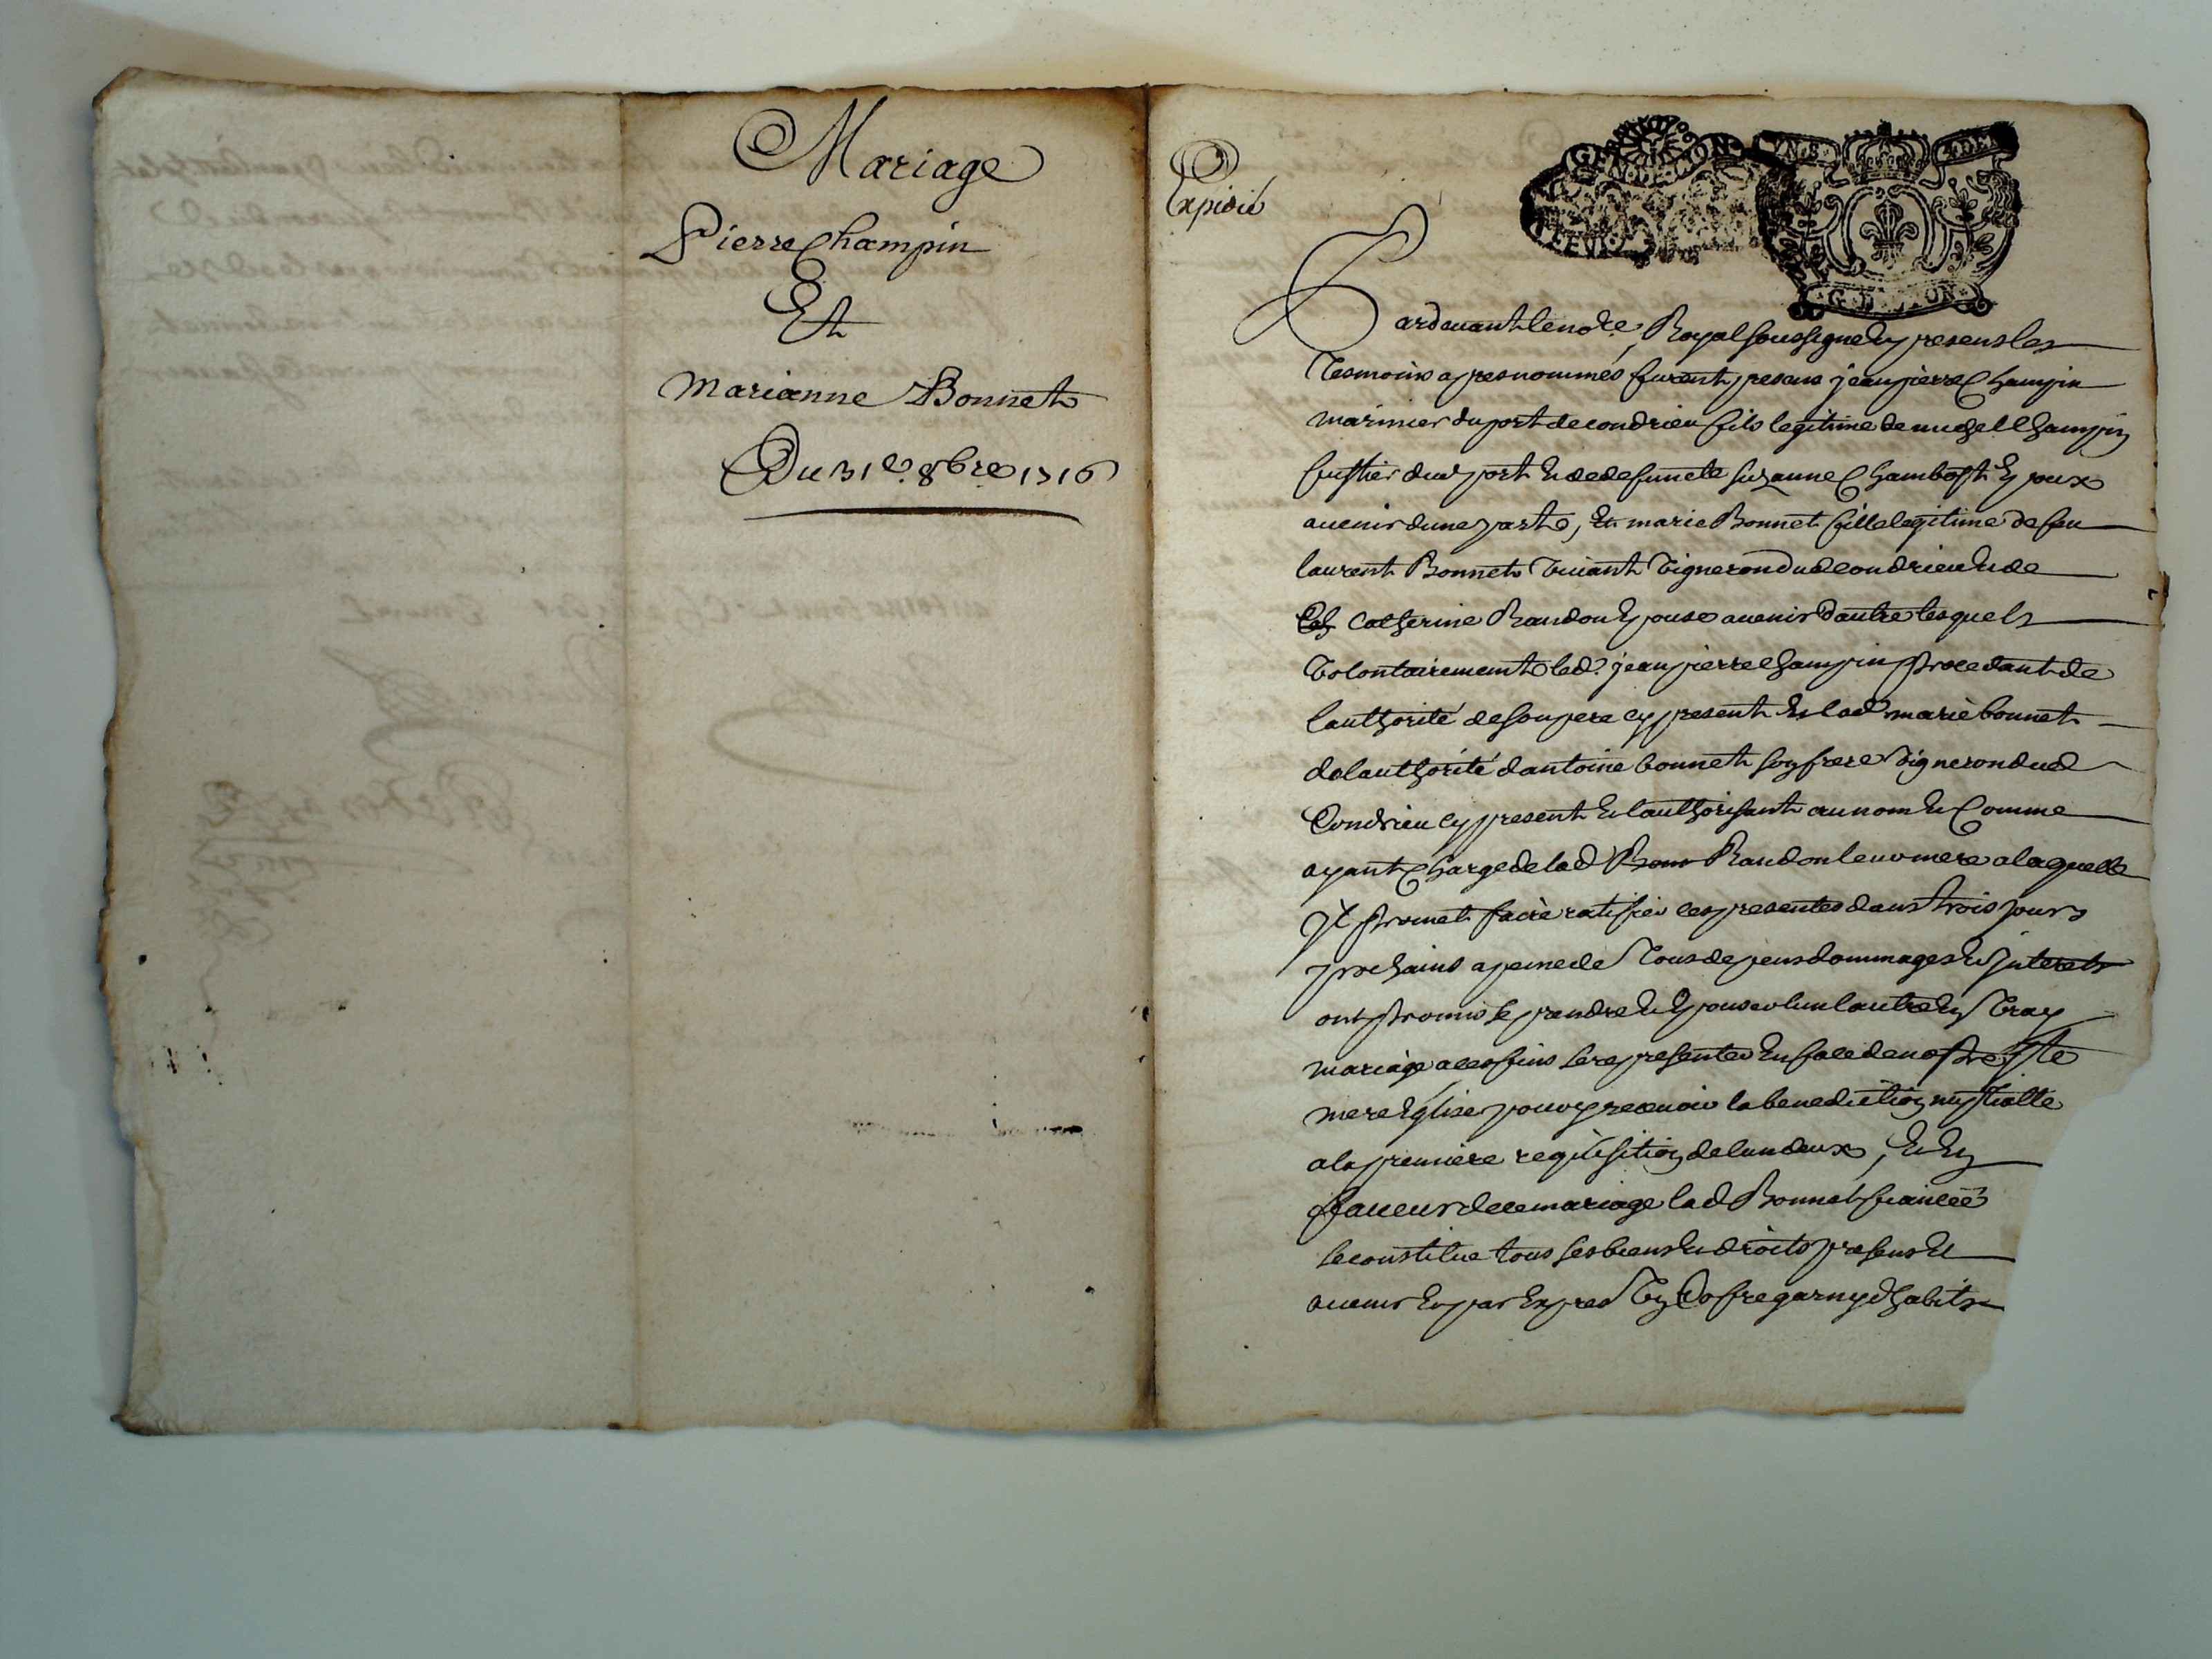 Mariage
Pierre Champin
Et
Marianne Bonnet
Du 31e. 8bre 1716
Expedié
GENERALITE
DE LYON
Pardevant le nore. Royal soussigné en presens les
Tesmoins apres nommés furent presens jean pierre Champin
marinier du port de condrieu fils legitime de michel Champin
fustier dud port et de defuncte suzanne Chambost Epoux
avenir dune parte, Et marie Bonnet fille legitime de feu
laurent Bonnet vivant vigneron dud condrieu et de
Catherine Randon Epouse avenir d'autre lesquels
volontairement led. jean pierre Champin procedant de
l'authorité de son pere cy present Et lad marie bonnet
de lauthorité dantoine bonnet son frere vigneron dud
Condrieu cy present et lauthorisant au nom et Comme
ayant Charge de lad Bon Randon leur mere a laquelle
Il promet faire ratifier ces presentes dans trois jours
prochains a peine de Tous depens dommages et Interets
ont promis se prendre et Epouser lun lautre en vray
mariage a ces fins se representer En face de nostre Ste
mere Eglise pour y recevoir la benediction nuptialle
a la premiere requisition de lun deux, Et En
faveur de ce mariage lad Bonnet fiancée
se constitue tous ses biens et droits presens et
avenir Et par Expres un Cofre garny dhabits